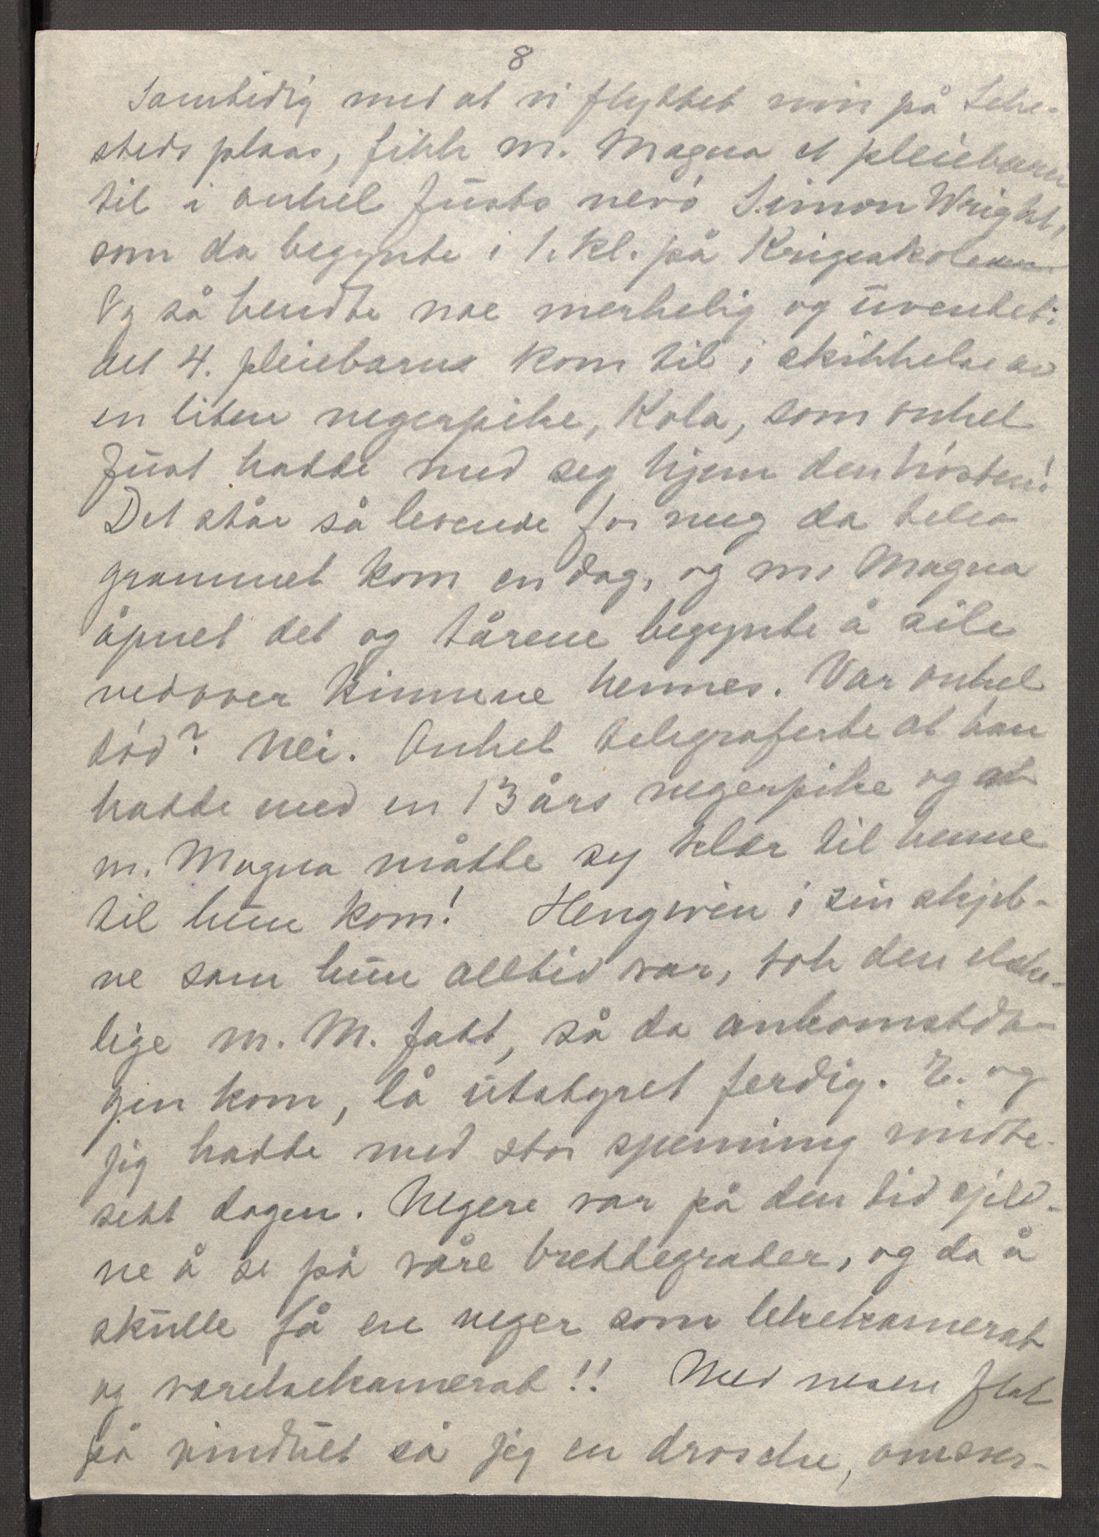 8
Samtidig med at vi flyttet inn på Sehe-
steds plass, fikk m. Magna et pleiebarn
til i onkel Justs nevø Simon Wright,
som da begynte i 1. kl. på Krigsskolen
Og så hendte noe merkelig og uventet:
det 4. pleiebarns kom til i skikkelse av
en liten negerpike, Kola, som onkel
Just hadde med seg hjem den høsten!
Det står så levende for meg da tele-
grammet kom en dag, og m. Magna
åpnet det og tårene begynte å sile
nedover kinnene hennes. Var onkel
død? Nei. Onkel telegraferte at han
hadde med en 13 års negerpike og at
m. Magna måtte sy klær til henne
til hun kom! Hengiven i sin skjeb-
ne som hun alltid var, tok den elske-
lige m. M. fatt, så da ankomstda-
gen kom, lå utstyret ferdig. E. og
jeg hadde med stor spenning imøte-
sett dagen. Negere var på den tid sjeld-
ne å se på våre breddegrader, og da å
skulle få en neger som lekekamerat
og værelsekamerat!! Med nesen flat
på vinduet så jeg en drosche, omsver-